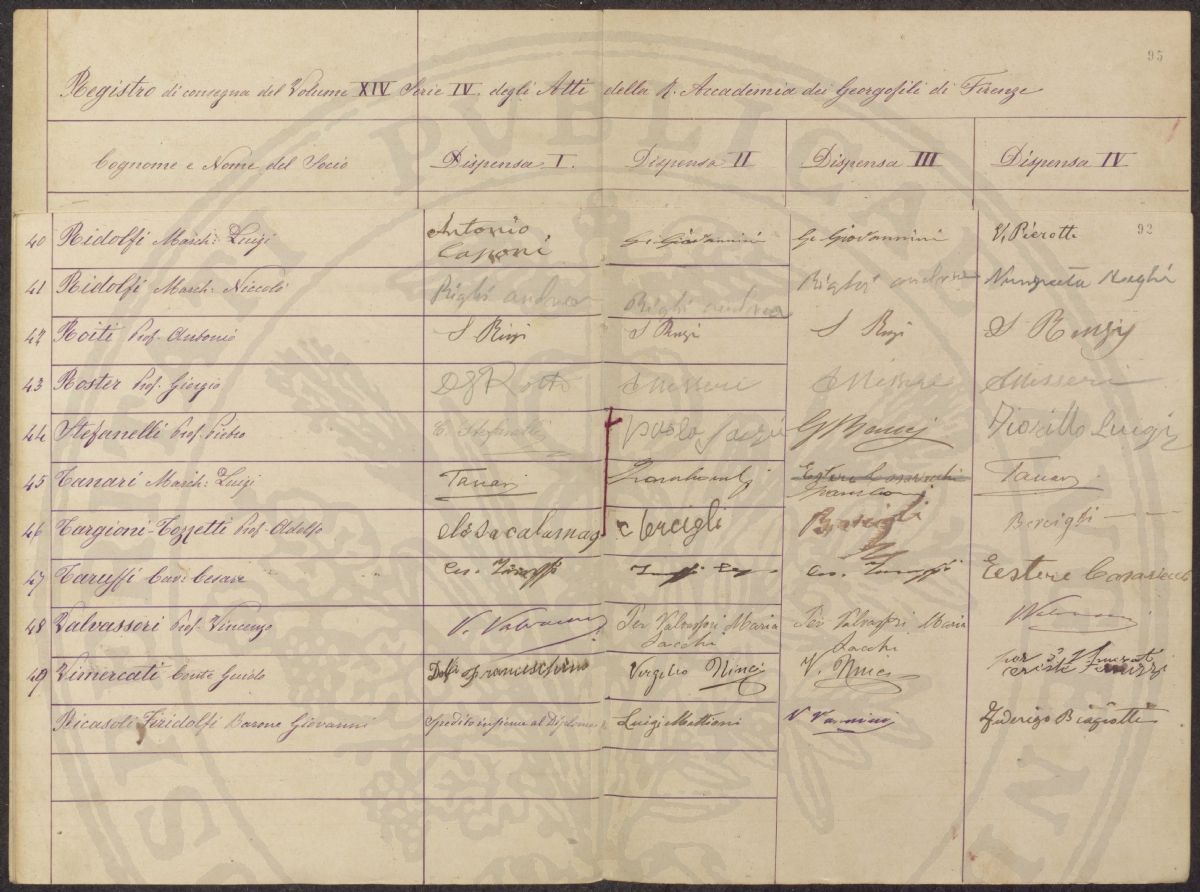 95
Registro di consegna del Volume XIV Serie IV. degli Atti della R. Accademia dei Georgofili di Firenze
Cognome e Nome del Socio Dispensa I. Dispensa II Dispensa III Dispensa IV
92
40 Ridolfi March: Luigi Antonio Capponi G. Giovannini G. Giovannini V. Pierotti
41 Ridolfi March: Niccolò Righi andrea Righi andrea Righi andrea Nunziata Righi
42 Roiti Prof. Antonio S Rinzi S Renzi S Renzi S Renzi
43 Roster Prof. Giorgio Messeri Messeri Messeri
44 Stefanelli Prof. Pietro C. Stefanelli paolo Fiorillo Luigi
45 Tanari March: Luigi Tanari Tanari
46 Targioni-Tozzetti Prof. Adolfo elisa calamag Bercigli Bercigli Bercigli
47 Taruffi Cav: Cesare Ces. Taruffi Ces. Taruffi Estere
48 Valvassori Prof. Vincenzo V. Valvassori Per Valvassori Maria Sacchi Per Valvassori Maria Sacchi
49 Vimercati Conte Guido Franceschino Virgilio Ninci V. Ninci
Ricasoli Firidolfi Barone Giovanni Spedito insieme al Diploma Luigi Mattioni V Vannini Federigo Biagiotti
PVBLICAE